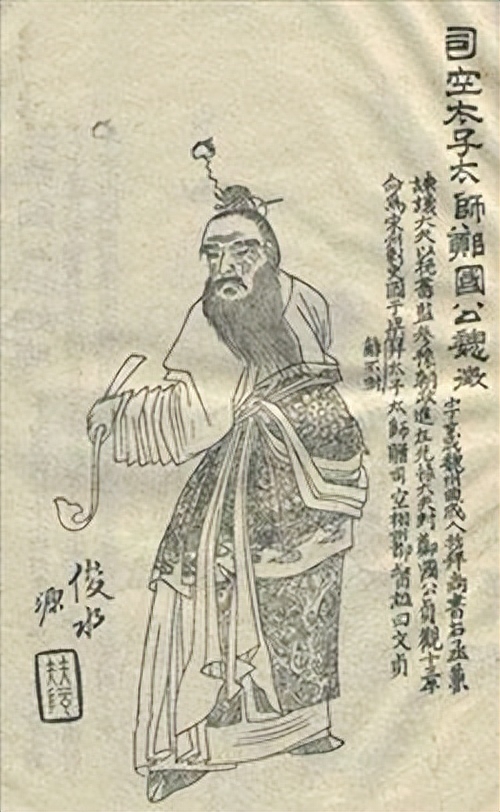 司空太子太師鄭國公魏徵
字玄成魏州曲成人拜尚書右丞兼
諫議大夫以秘書監參豫朝政進左光祿大夫封鄭國公貞觀十年
命為刺史國子拜太子太師贈司空相州都督謚曰文貞
俊水
源